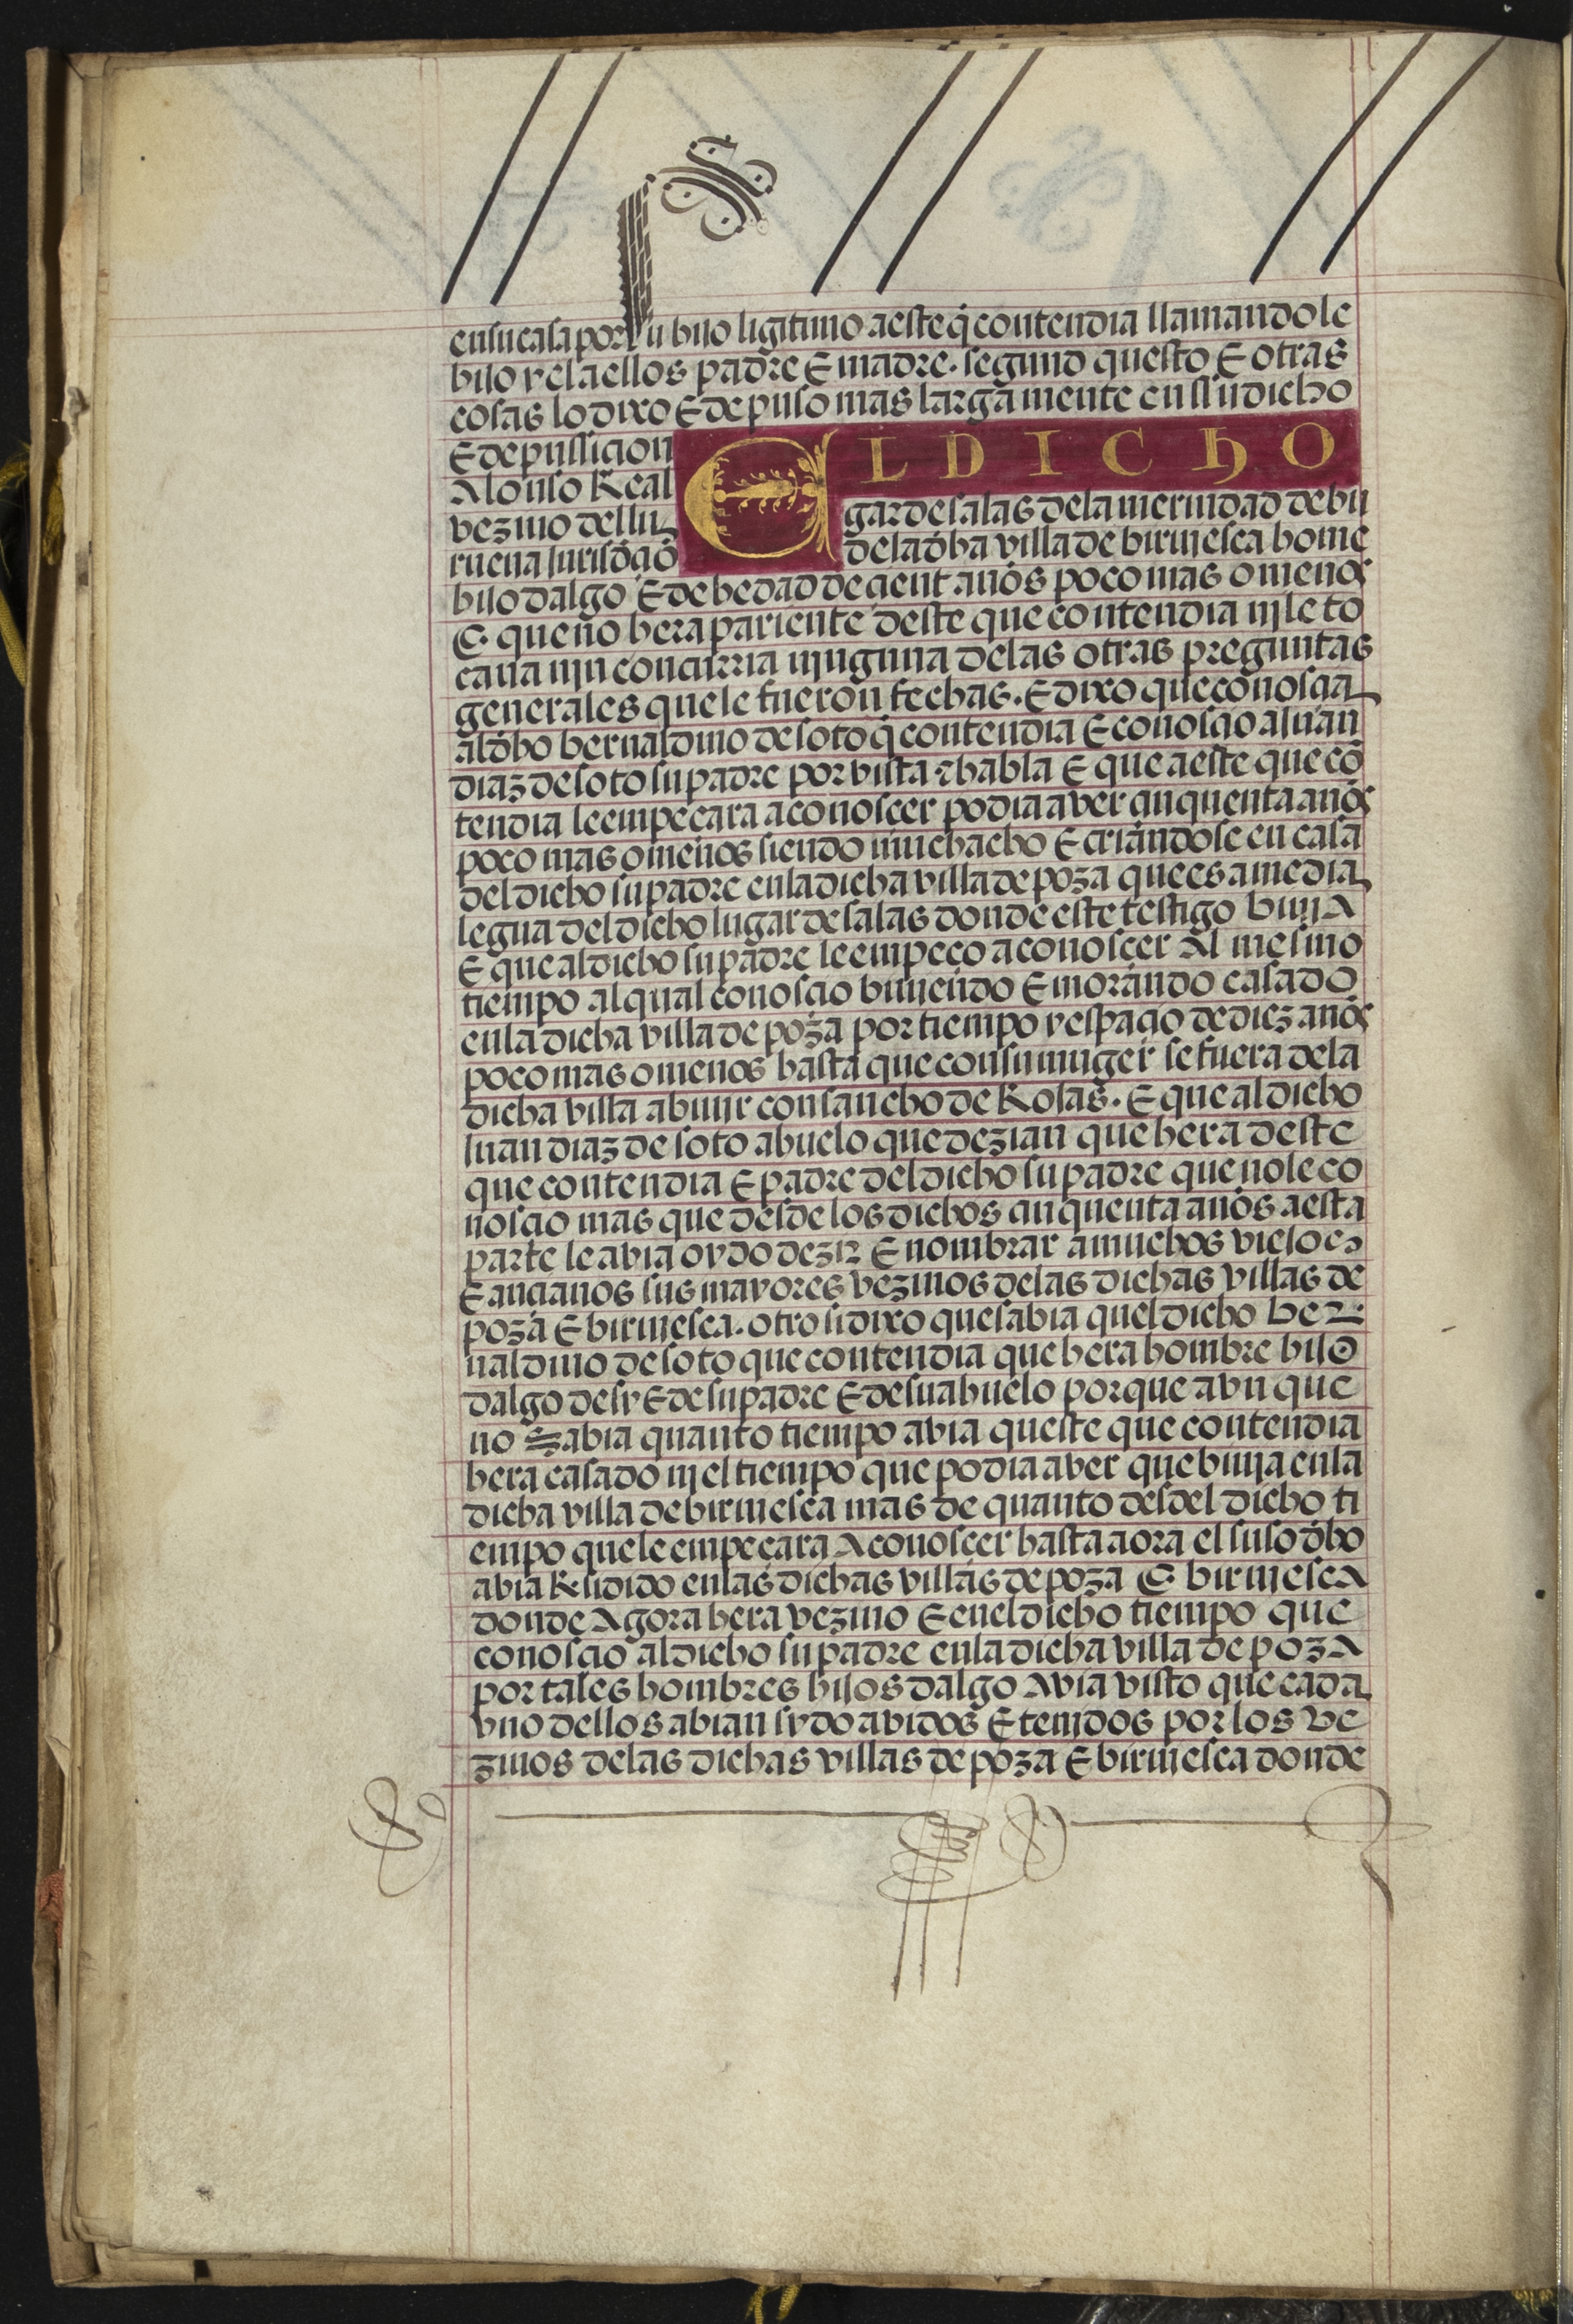 en su casa por su hijo ligitimo a este q̃ contendia llamandole
hijo y el a ellos padre E madre. segund questo E otras
cosas lo dixo E depuso mas larga mente en su dicho
E depusicion EL DICHO
Alonso Real
vezino del lu gar de salas de la merindad de bu
rueua jurisdiçiõ de la dha villa de biruiesca home
hijo dalgo E de hedad de çient años poco mas o menos
E que no hera pariente deste que contendia nj le to
caua njn concurria njnguna de las otras preguntas
generales que le fueron fechas. E dixo que conosçia
al dho bernaldino de soto q̃ contendia E conosçio a juan
diaz de soto su padre por vista e habla E que a este que cõ
tendia le empeçara a conosçer podia aver çinquenta años
poco mas o menos siendo muchacho E criandose en casa
del dicho su padre en la dicha villa de poza que es a media
legua del dicho lugar de salas donde este testigo biujA
E que al dicho su padre le empeço a conosçer Al mesmo
tiempo al qual conosçio biujendo E morando casado
en la dicha villa de poza por tiempo y espaçio de diez años
poco mas o menos hasta que con su muger se fuera de la
dicha villa a biujr con sancho de Rojas. E que al dicho
juan diaz de soto abuelo que dezian que hera deste
que contendia E padre del dicho su padre que no le co
nosçio mas que desde los dichos çinquenta años a esta
parte le abia oydo dezir E nombrar a muchos viejos
E ançianos sus mayores vezinos de las dichas villas de
poza E birujesca. otro si dixo que sabia quel dicho ber
naldino de soto que contendia que hera hombre hijo
dalgo de sy E de su padre E de su abuelo porque avn que
no Sabia quanto tiempo avia queste que contendia
hera casado nj el tiempo que podia aver que biuja en la
dicha villa de birujesca mas de quanto desdel dicho ti
empo que le empeçara A conosçer hasta aora el suso dho
abia Residido en las dichas villas de poza E birujescA
donde Agora hera vezino E en el dicho tiempo que
conosçio al dicho su padre en la dicha villa de pozA
por tales hombres hijos dalgo Avia visto que cada
vno dellos abian sydo avidos E tenjdos por los ve
zinos de las dichas villas de poza E birujesca donde